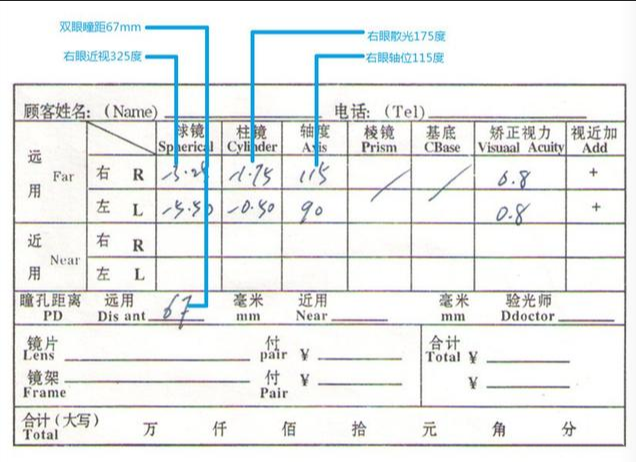 双眼瞳距67mm
右眼近视325度
右眼散光175度
右眼轴位115度
顾客姓名:(Name) 电话:(Tel)
球镜 柱镜 轴度 棱镜 基底 矫正视力 视近加
Spherical Cylinder Axis Prism CBase Visuaal Acuity Add
远用 Far 右 R -3.25 -1.75 115 / / 0.8 +
左 L -5.50 -0.50 90 0.8 +
近用 Near 右 R
左 L
瞳孔距离 远用 67 毫米 近用 毫米 验光师
PD Dis ant mm Near mm Ddoctor
镜片 付 合计
Lens pair ¥ Total ¥
镜架 付 ¥ ¥
Frame Pair
合计(大写) 万 仟 佰 拾 元 角 分
Total